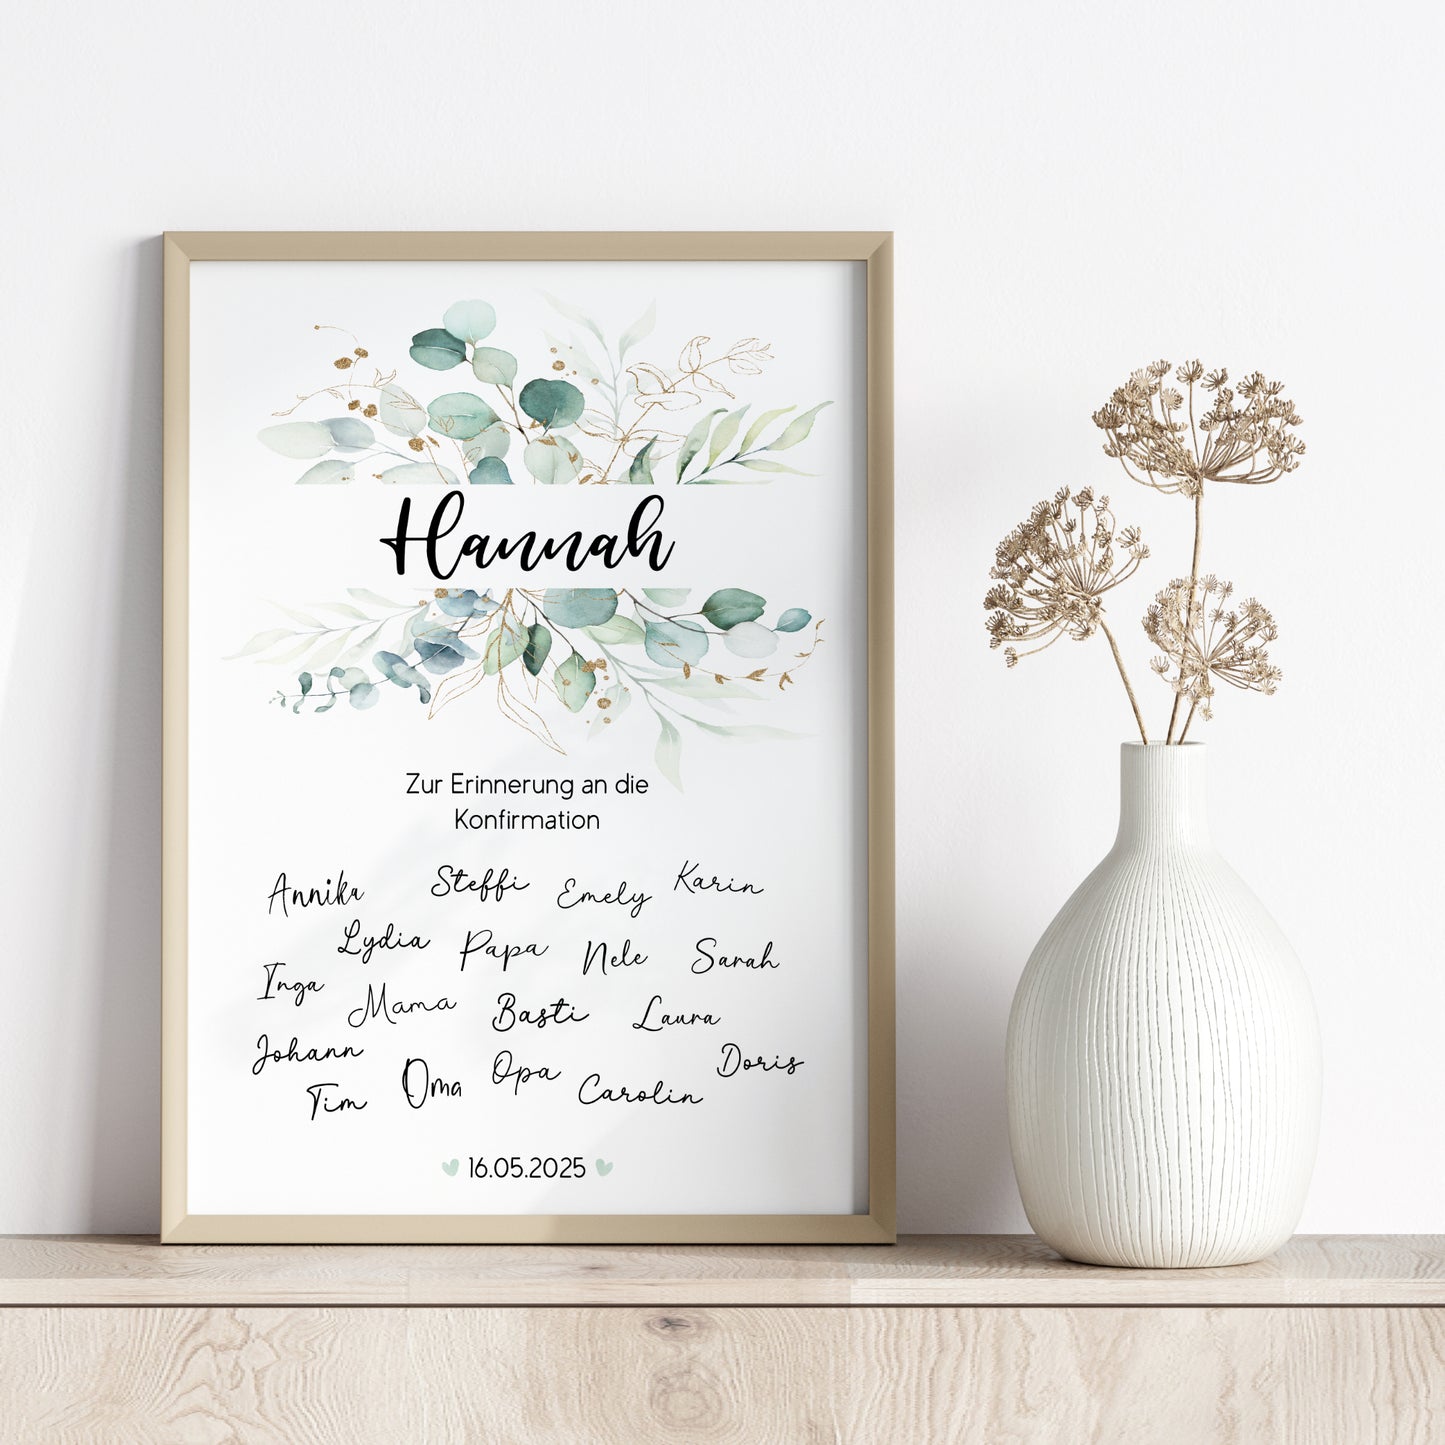 Hannah
Zur Erinnerung an die
Konfirmation
Annika Steffi Emely Karin
Lydia Papa Nele Sarah
Inga Mama Basti Laura
Johann Oma Opa Doris
Tim Carolin
16.05.2025